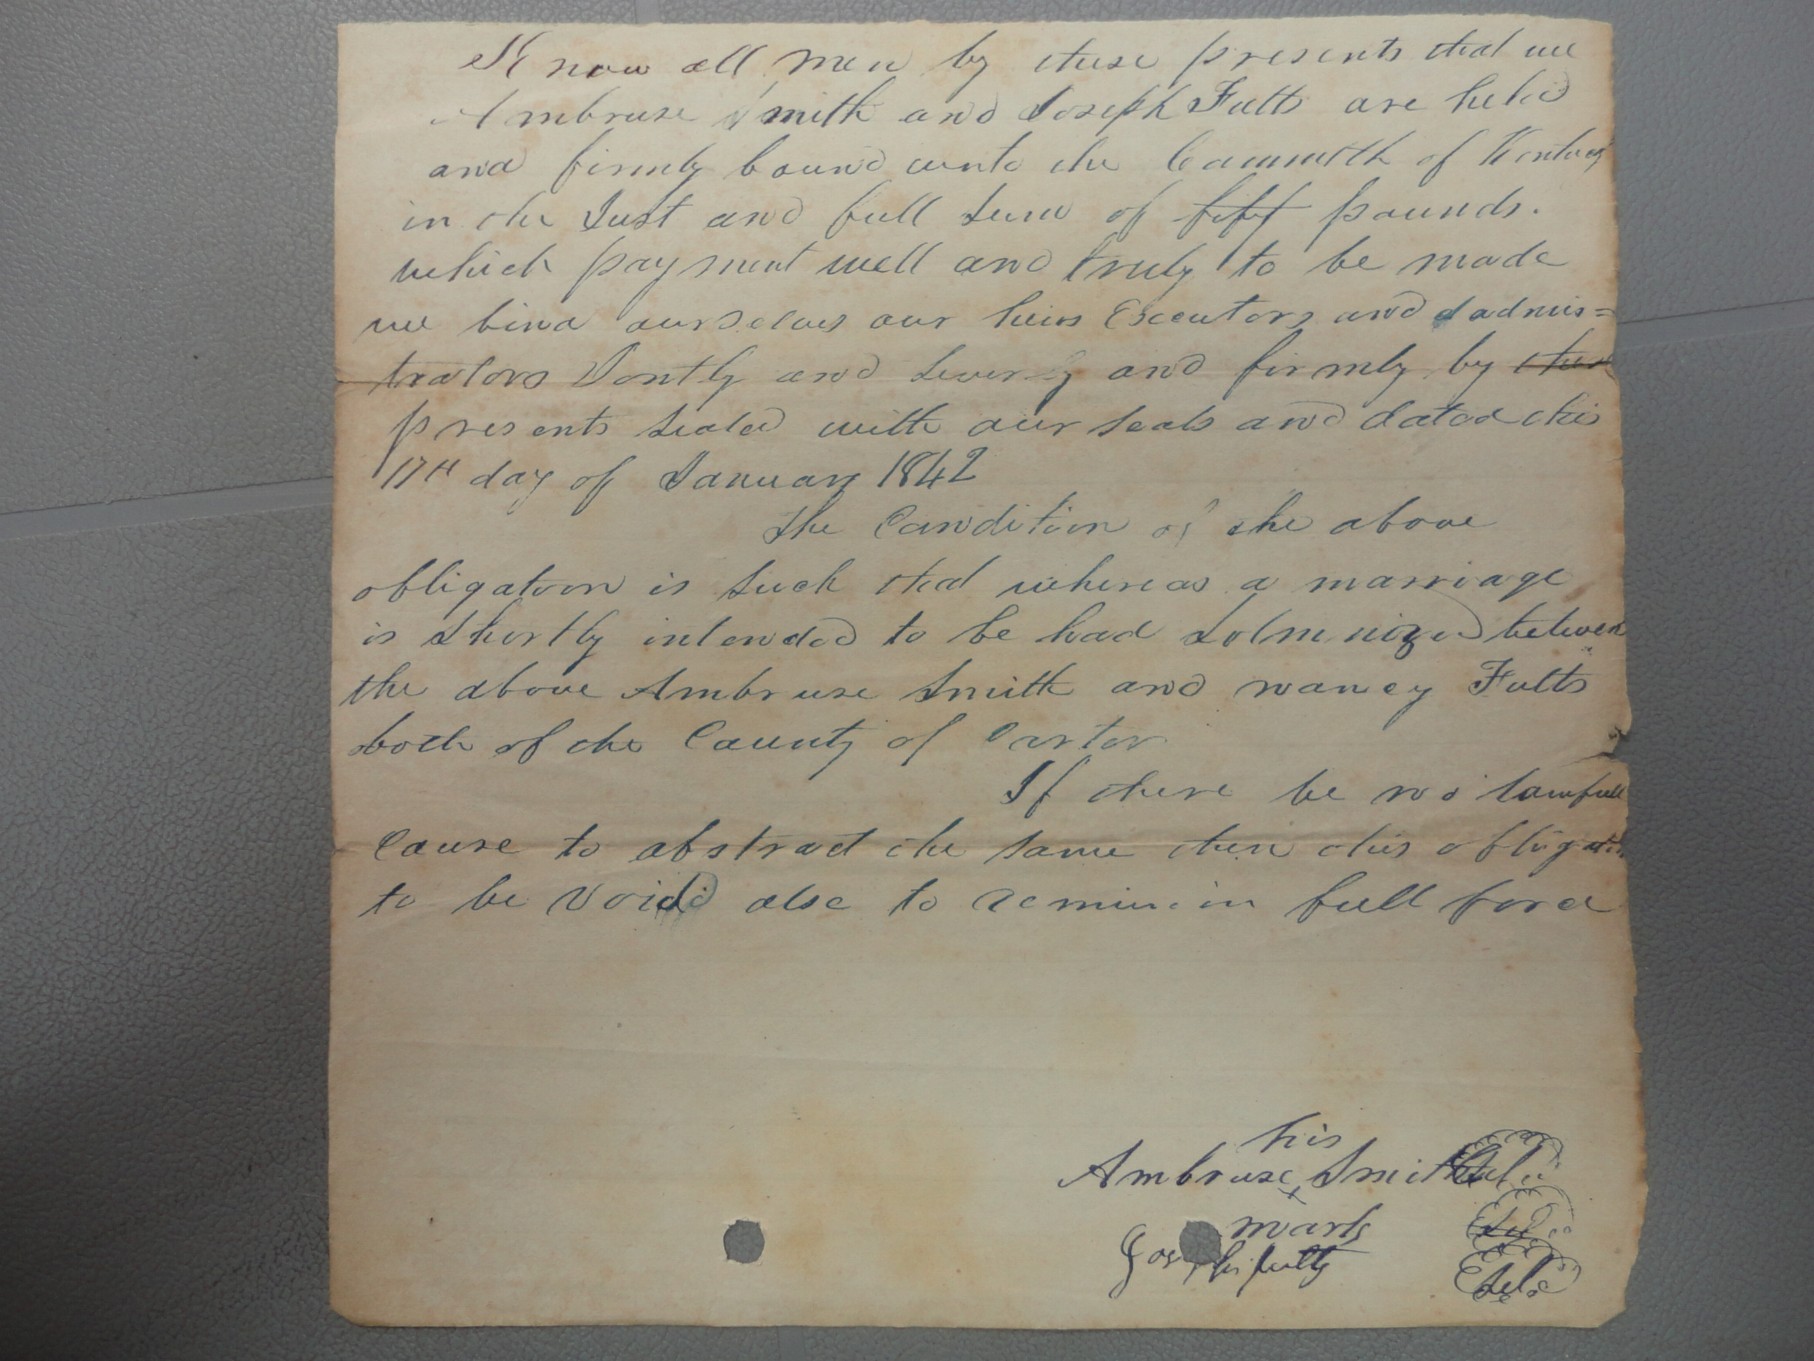 Know all men by these presents that we
Ambruse Smith and Joseph Fults are held
and firmly bound unto the Commwth of Kentucy
in the Just and full Sum of fifty pounds.
which payment well and truly to be made
we bind ourselves our heirs Executors and dadmis=
trators Jontly and Severly and firmly by these
presents Sealed with our Seals and dated this
17th day of January 1842
The Condition of the above
obligation is Such that whereas a marriage
is Shortly intended to be had Solmnized between
the above Ambruse Smith and nancy Fults
both of the County of Carter
If there be no lawfull
Cause to abstract the Same then this obligation
to be Void else to remin in full force
his
Ambruse x Smith Seal
mark
Joseph fults Seal